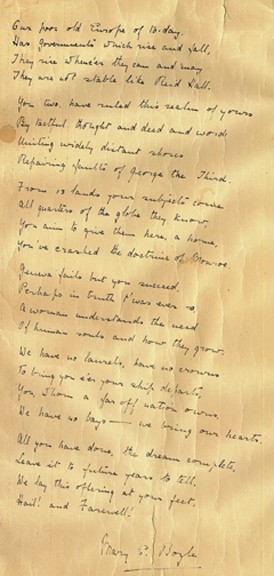 Our poor old Europe of to-day
Has Governments which rise and fall,
They rise whene'er they can and may
They are not stable like Reid Hall.
You two, have ruled this realm of yours
By tactful thought and deed and word
Uniting widely distant shores
Repairing faults of George the Third.
From 13 lands your subjects come
All quarters of the globe they know,
You aim to give them here, a home,
You've crashed the doctrine of Monroe.
Geneva fails but you succeed,
Perhaps in truth t'was ever so,
A woman understands the need
Of human souls and how they grow.
We have no laurels, have no crowns
To bring you e'er your ship departs,
You, whom a far off nation owns,
We have no bays — we bring our hearts.
All you have done, the dream complete,
Leave it to future years to tell,
We lay this offering at your feet,
Hail! and Farewell!
Mary E. Boyle